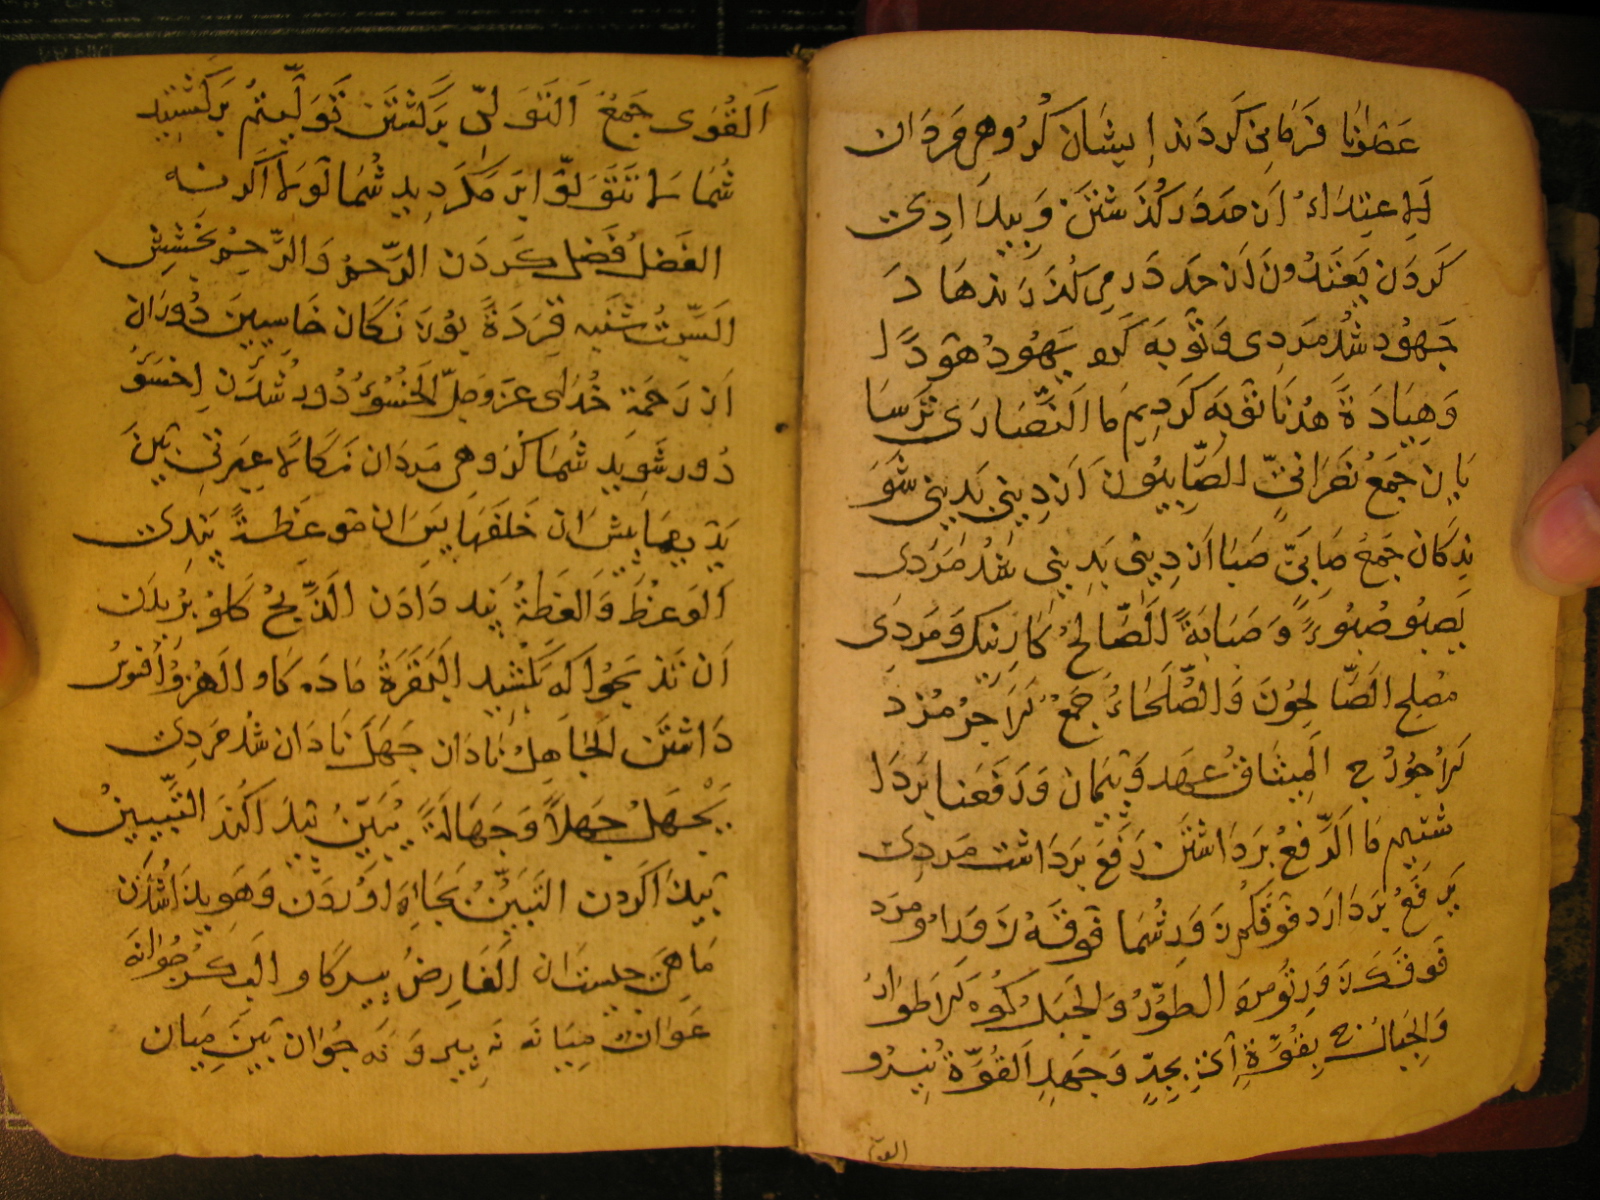 عَصَوْا نا فرمانی کردند ایشان گروهی مردان
الاِعتِدَاءُ از حد در گذشتن و بیدادی
کردن یَعْتَدُونَ از حد در می گذرند هَادَ
جهود شد مردی و توبه کرد یَهُودُ هَوْدًا
وَهِيَادَةً هُدْنَا توبه کردیم ما النَّصَارَى ترسا
یان جمع نصرانیّ الصَّابِئُونَ از دینی بدینی شو
ندکان جمع صابیّ صَبَا از دینی بدینی شد مردی
یَصْبُو صُبُوءً وَ صَبَاءَةً الصَّالِحُ کار نیک و مردی
مصلح الصَّالِحُونَ وَالصُّلَحَاءُ جمع الاَجْرُ مزد
الاُجُورُ ج المِيثَاقُ عهد و پیمان وَرَفَعْنَا بردا
شتیم ما الرَّفْعُ برداشتن رَفَعَ برداشت مردی
یَرْفَعُ بردارد فَوْقَكُمْ زور شما فَوْقَهُ زور او مرد
فَوْقَكَ زور تو مرد الطُّورُ وَالجَبَلُ کوه الاَطْوَارُ
وَالجِبَالُ ج بِقُوَّةٍ اَيْ بِجِدٍّ وَجَهْدٍ القُوَّةُ نیرو
القوی
اَلقُوَى جمعُ اَلتَّوَلِّي برگشتن تَوَلَّيْتُمْ برگشتید
شما لاَ تَتَوَلَّوْا بر مکردید شما لَوْلاَ اگر نه
الفَضْلُ فضل کردن الرَّحْمُ وَالرُّحْمُ بخشش
السَّبْتُ شنبه قِرَدَةً بوزنکان خَاسِئِينَ دوران
از رحمة خدای عز وجلّ الخُسُوءُ دور شدن اِخْسَؤُا
دور شوید شما گروهی مردان نَكَالاً عبرتی بَيْنَ
يَدَيْهَا پیش ان خَلْفَهَا پس ان مَوْعِظَةً پندی
الوَعْظُ وَالعِظَةُ پند دادن الذَّبْحُ کلو بریدن
اَنْ تَذْبَحُوا که بکشید البَقَرَةُ ماده کاو الهُزُؤُ افسوس
داشتن الجَاهِلُ نادان جَهِلَ نادان شد مردی
يَجْهَلُ جَهْلاً وَجَهَالَةً يُبَيِّنُ پیدا کند التَّبْيِينُ
پیدا کردن التَّبَيُّنُ بجای اوردن و هویدا شدن
مَاهِيَ چیست ان الفَارِضُ پیر کاو البِكْرُ جوانه
عَوَانٌ میانه نه پیر و نه جوان بَيْنَ میان